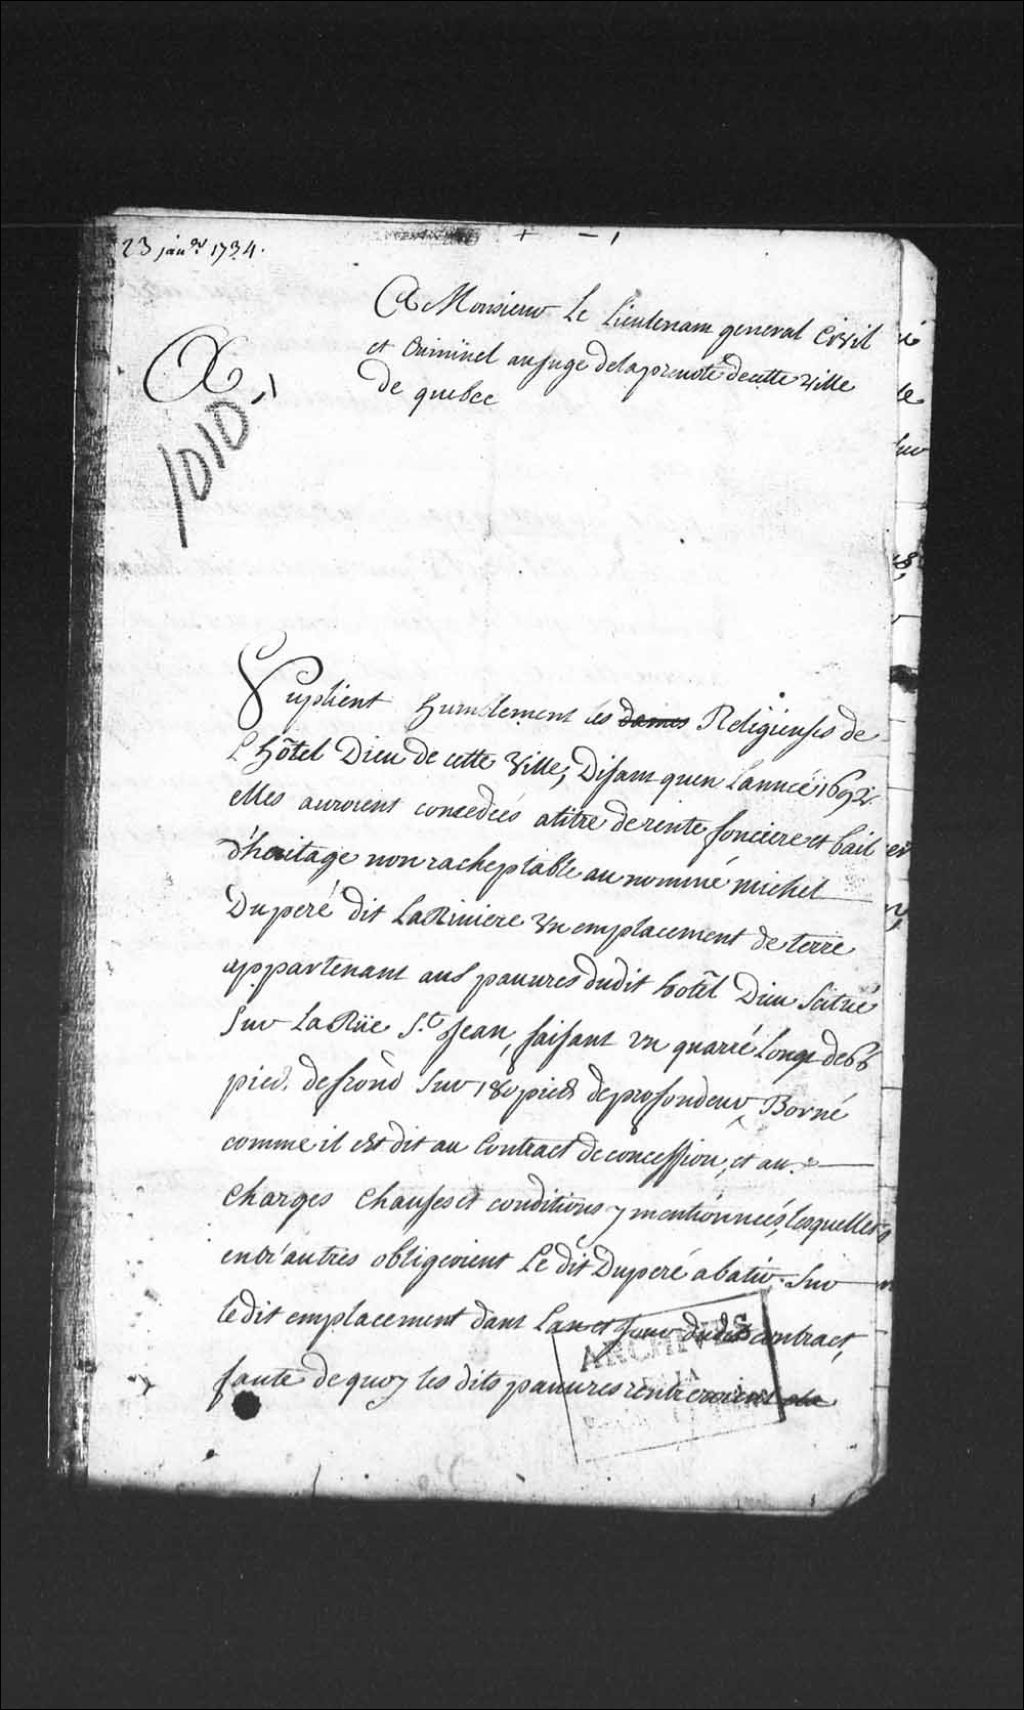 23 janer 1734.
A Monsieur Le Lieutenant general Civil
et Criminel au juge de la prevoté de cette ville
de quebec
1010
Suplient humblement les dames Religieuses de
L'hôtel Dieu de cette ville, Disant quen Lannée 1692
elles auroient concedées atitre de rente fonciere et bail
d'heritage non racheptable au nommé michel
Duperé dit LaRiviere un emplacement de terre
appartenant aus pauvres dudit hotel Dieu Scitué
Sur La Rüe St Jean, faisant un quarré Long de 66
pied. defrond Sur 180 pieds de profondeur, Borné
comme il est dit au Contract de concession, et au
charges Chauses et conditions y mentionnées, lesquelles
entr'autres obligeoient Le dit Duperé abatir Sur
ledit emplacement dans Lan et Jour dudit contract,
faute dequoy les dits pauvres rentreroient
ARCHIVES